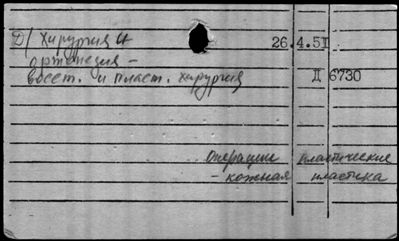 Д/ Хирургия и 26.4.51
ортопедия –
восст. и пласт. хирургия Д 6730
Операции пластические
– кожная пластика